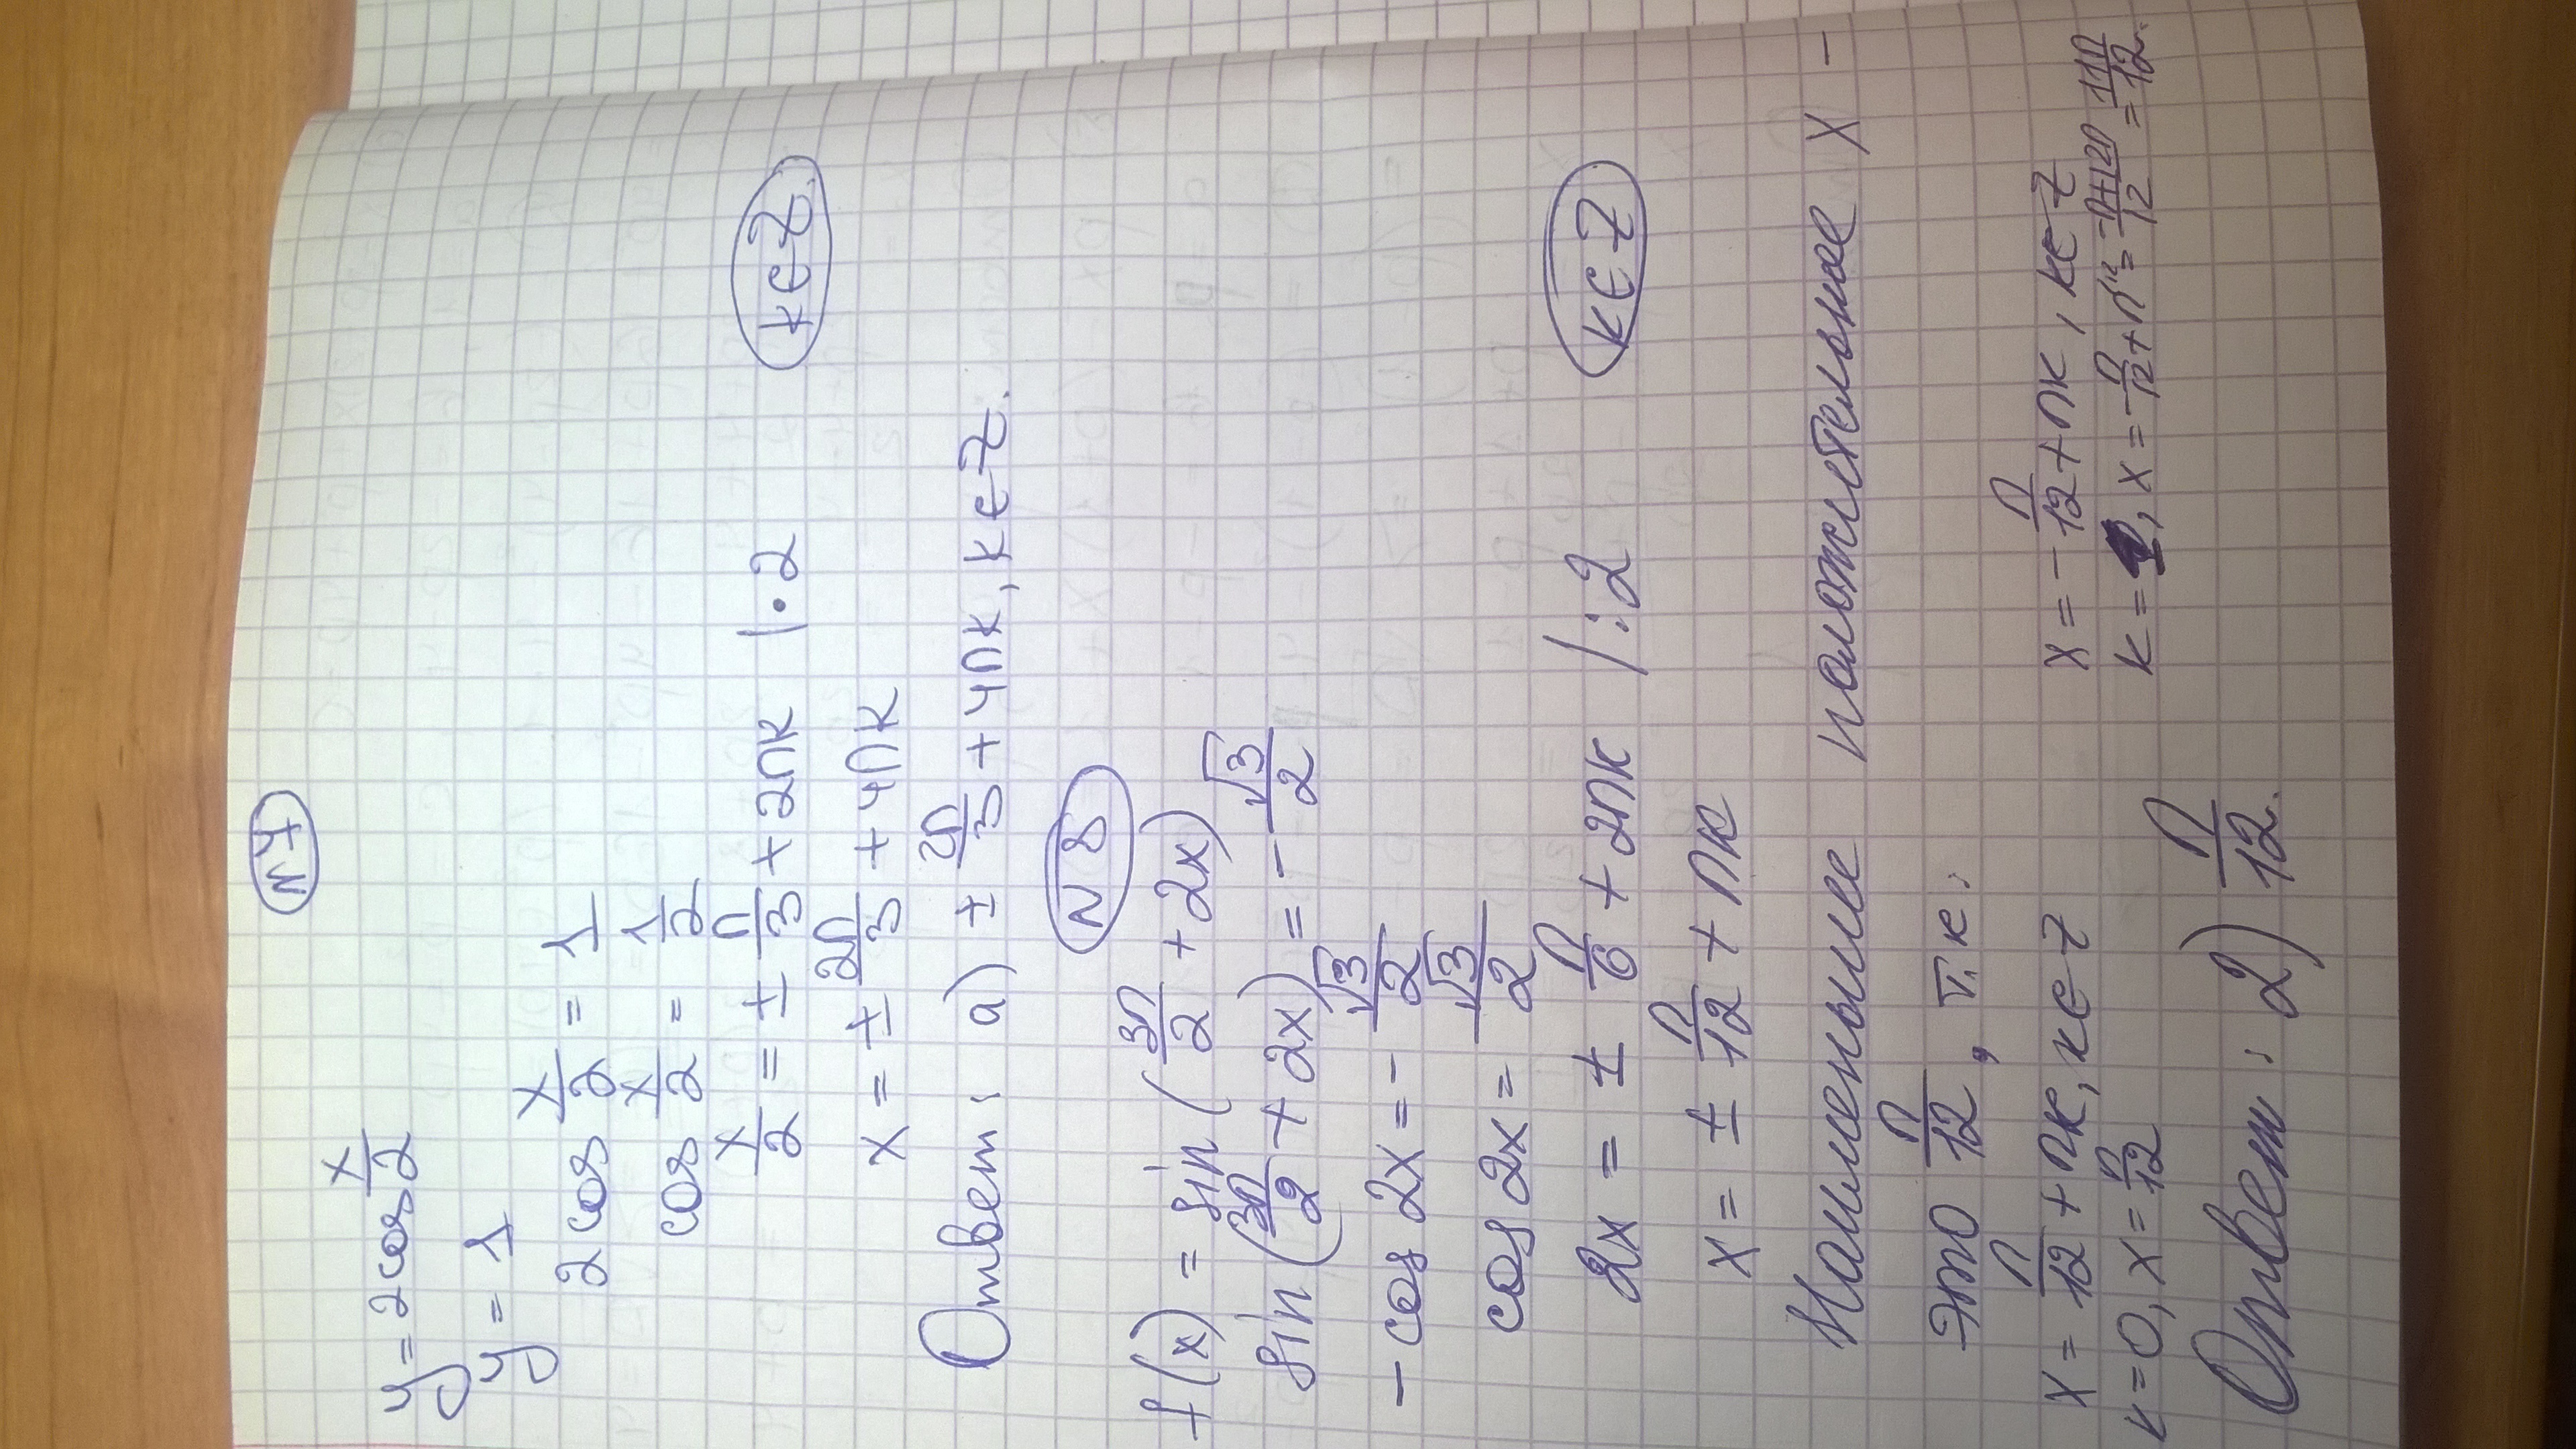 N7
y = 2cos x/2
y = 1
2cos x/2 = 1
cos x/2 = 1/2
x/2 = ± π/3 + 2πк |·2 к∈Z
x = ± 2π/3 + 4πк
Ответ: а) ± 2π/3 + 4πк, к∈Z.
N8
f(x) = sin (3π/2 + 2x)
sin (3π/2 + 2x) = - √3/2
- cos 2x = - √3/2
cos 2x = √3/2
2x = ± π/6 + 2πк /:2 к∈Z
x = ± π/12 + πк
Наименьшее положительное x -
это π/12, т.к.
x = π/12 + πк, к∈Z x = - π/12 + πк, к∈Z
к=0, x = π/12 к=1, x = - π/12 + π" = -π+12π/12 = 11π/12.
Ответ: 2) π/12.